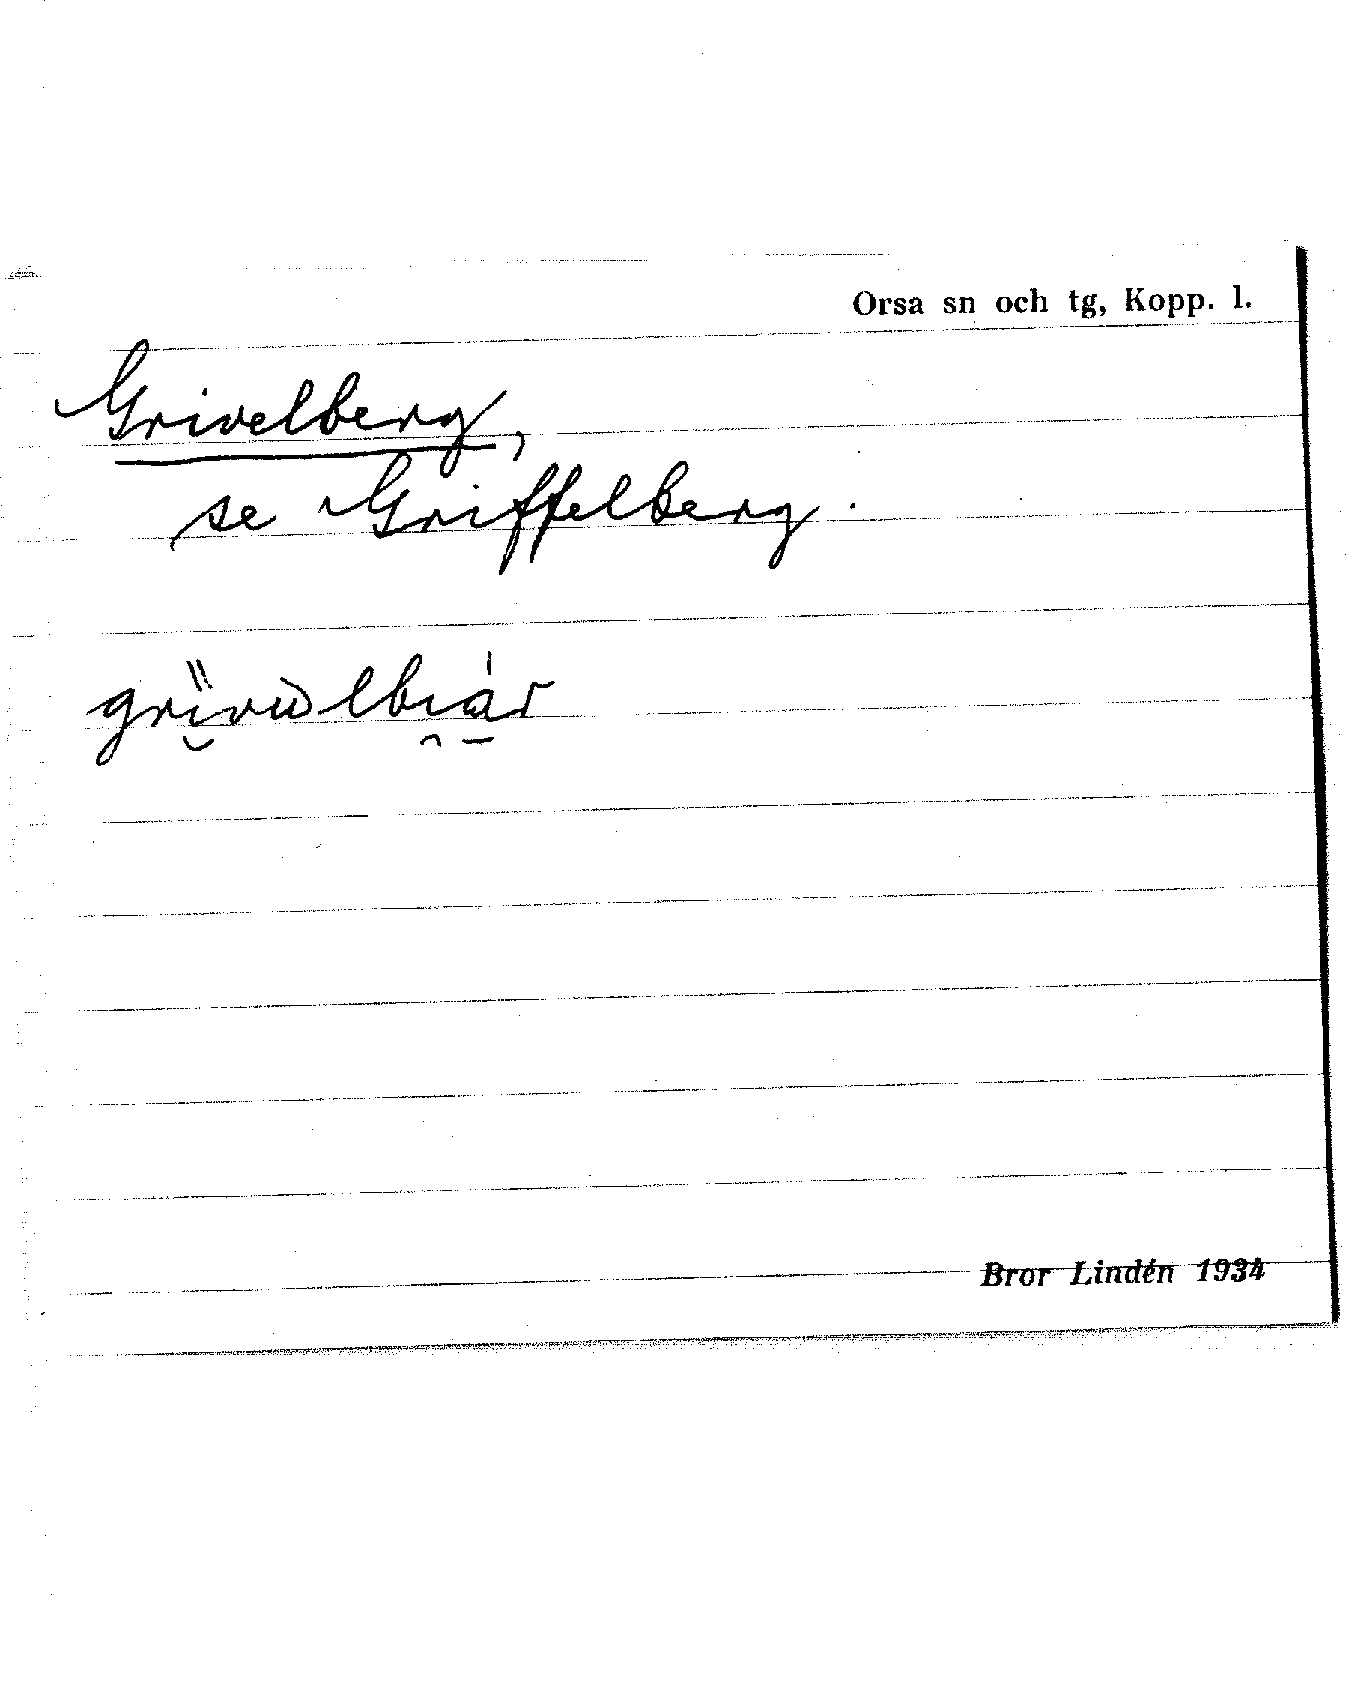 Orsa sn och tg, Kopp. l.
Grivelberg,
se Griffelberg.
Bror Lindén 1934